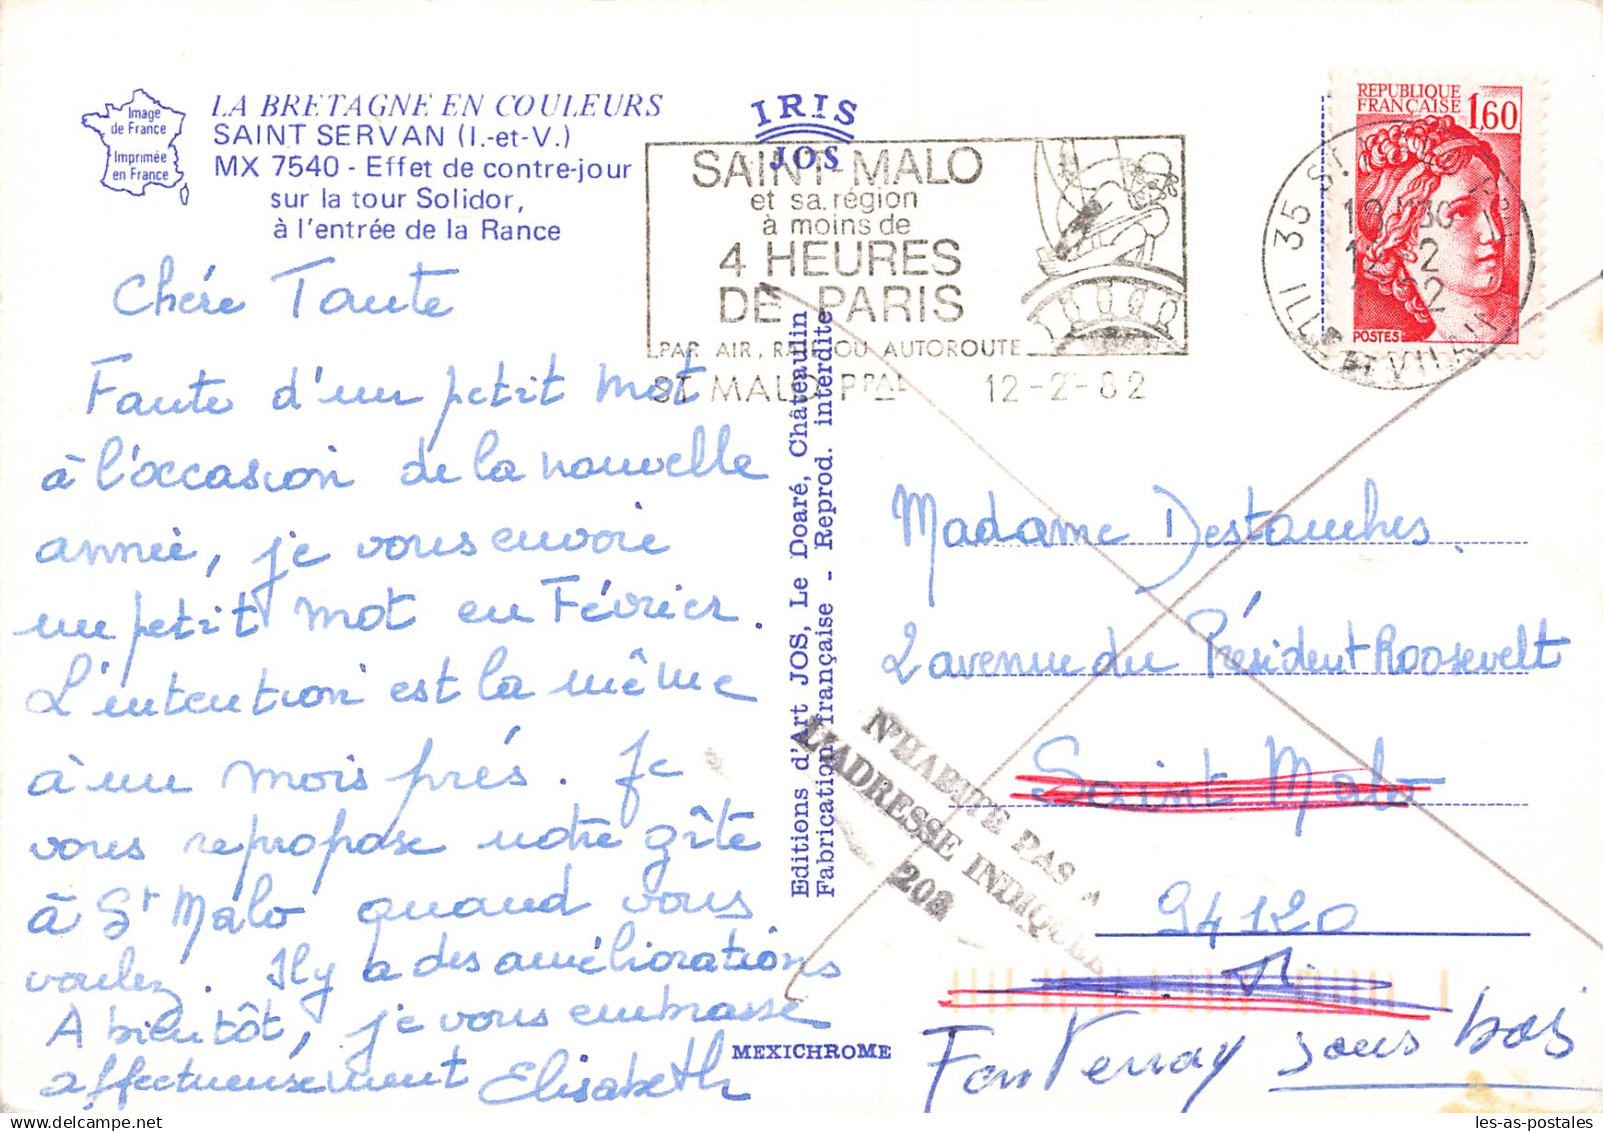 Image
de France
Imprimée
en France
LA BRETAGNE EN COULEURS
SAINT SERVAN (I.-et-V.)
MX 7540 - Effet de contre-jour
sur la tour Solidor,
à l'entrée de la Rance
IRIS
JOS
SAINT-MALO
et sa région
à moins de
4 HEURES
DE PARIS
PAR AIR, RAIL OU AUTOROUTE
ST MALO PPAL 12-2-82
REPUBLIQUE
FRANÇAISE 1,60
POSTES
35 ST
12-2
ILLE ET VILAINE
Chére Tante
Faute d'un petit mot
à l'occasion de la nouvelle
année, je vous envoie
un petit mot en Février.
L'intention est la même
à un mois prés. Je
vous repropose notre gîte
à St Malo quand vous
voulez. Il y a des améliorations
A bientôt, je vous embrasse
affectueusement Elisabeth
Editions d'Art JOS, Le Doaré, Châteaulin
Fabrication française - Reprod. interdite
MEXICHROME
Madame Destouches.
2 avenue du Président Roosevelt
Saint Malo
94120
Fontenay sous bois
N'HABITE PAS A
L'ADRESSE INDIQUÉE
208
les-as-postales